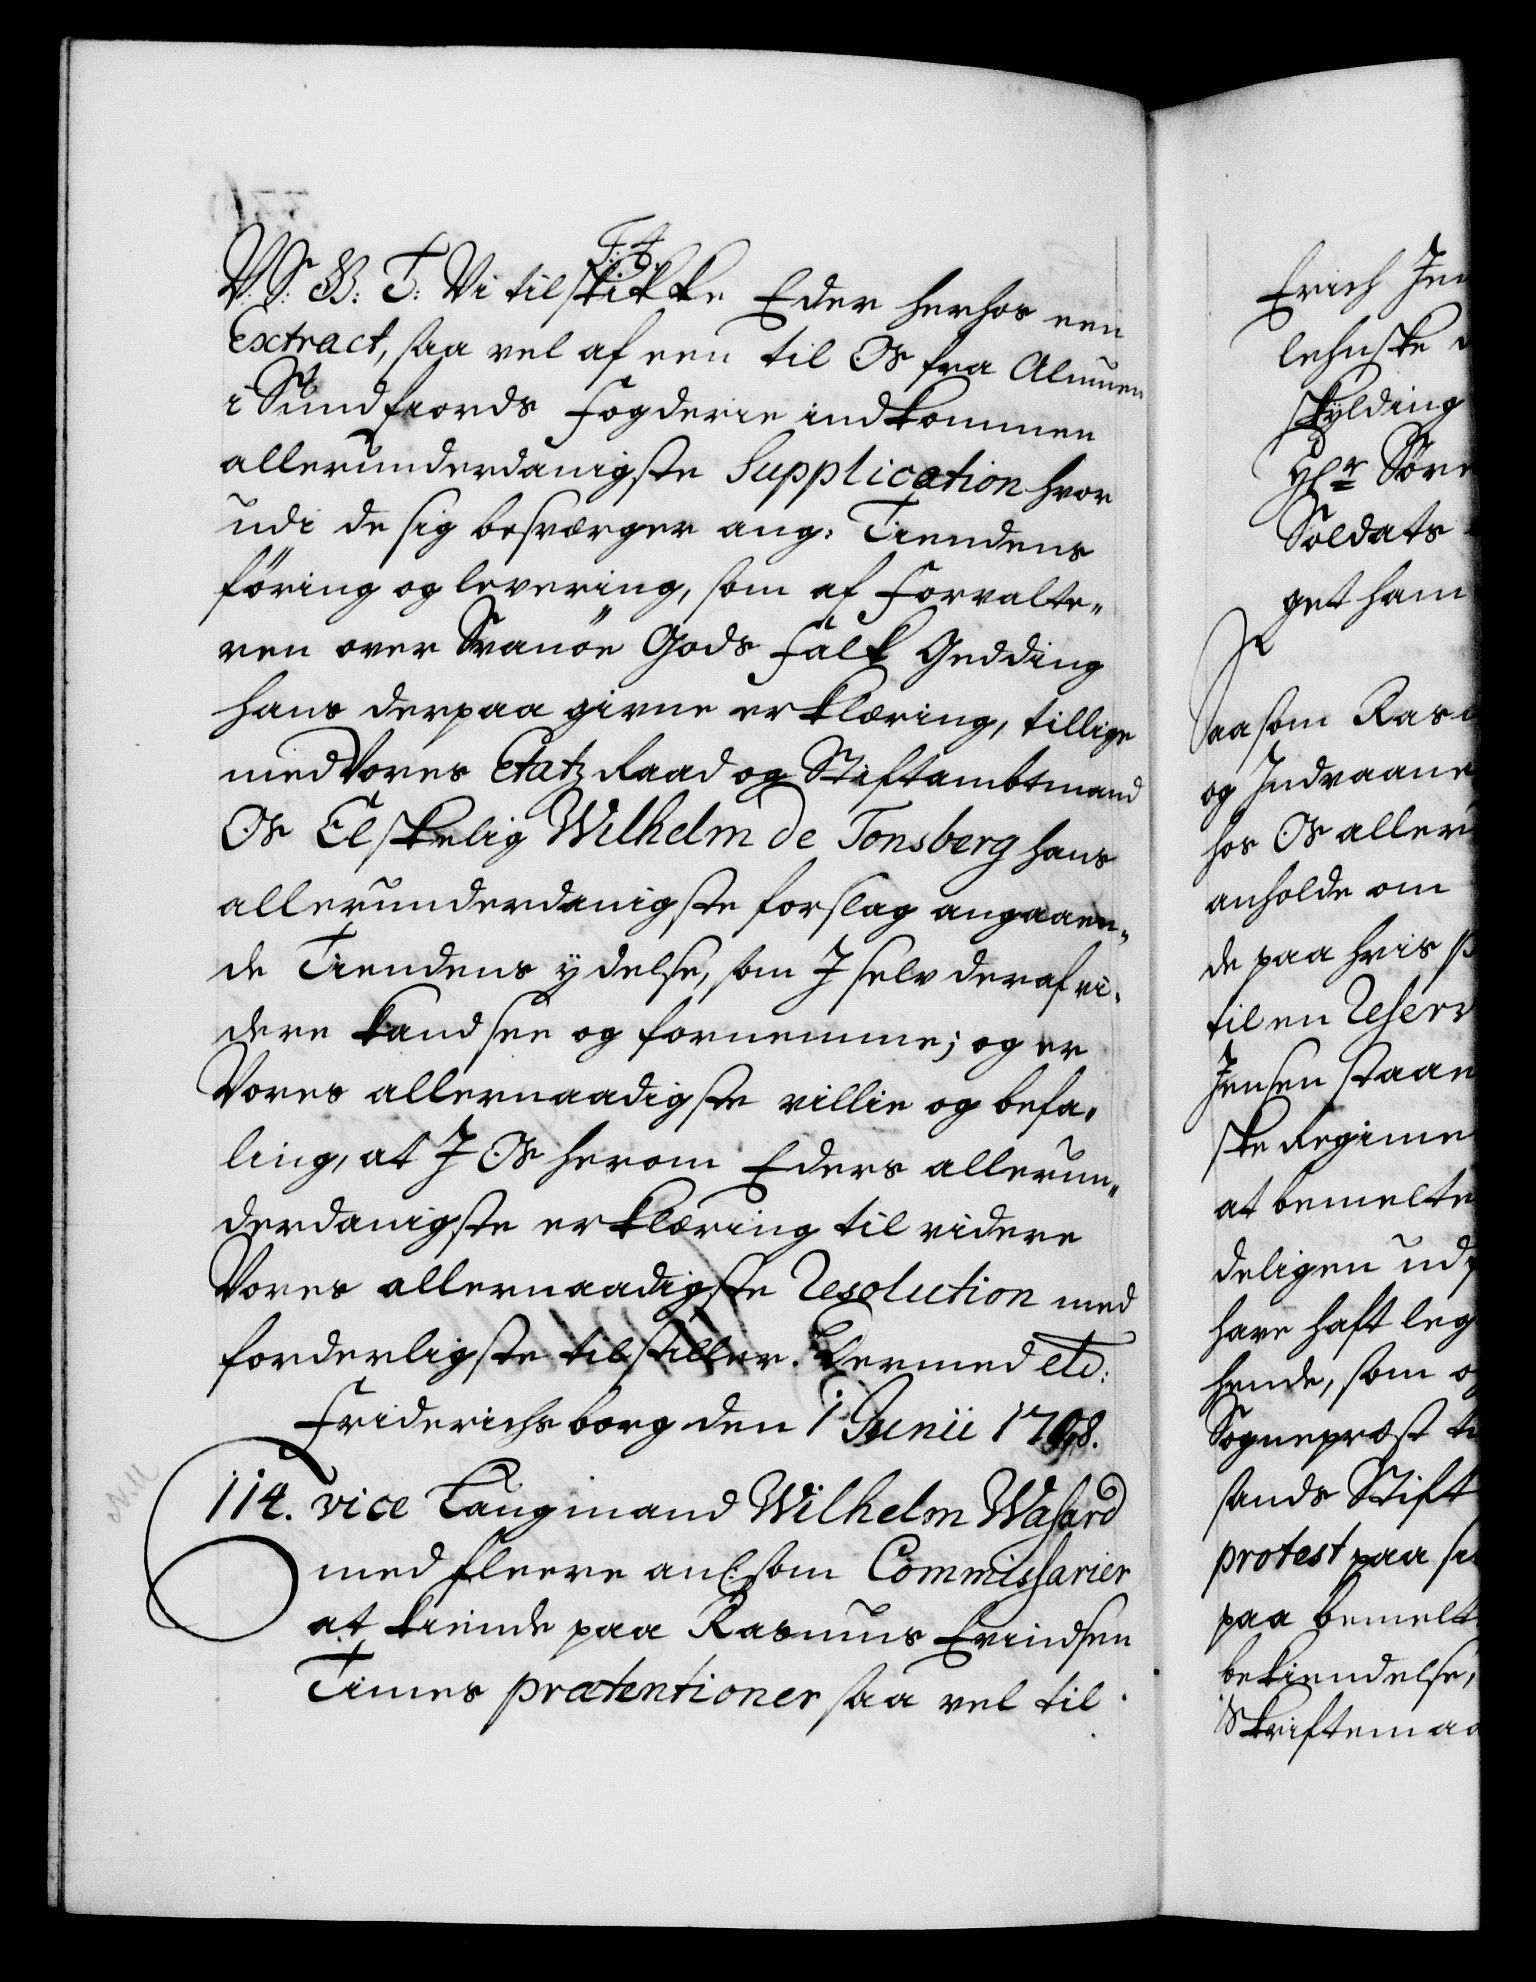 F: 4.
V: S: G: T: Vi tilskikke Eder herhos een
Extract, saa vel af een til Os fra Almuen
i Sundfiords Fogderie indkommen
allerunderdanigste Supplication hvor
udi de sig besværger ang: Tiendens
föring og levering, som af Forvalte„
ren over Svanöe Gods Falk Gedding
hans derpaa givne erklæring, tillige
med Vores Etatz Raad og Stiftambtmand
Os Elskelig Wilhelm de Tonsberg hans
allerunderdanigste forslag angaaen„
de Tiendens ÿdelse, som J selv deraf vi„
dere kand see og fornemme; og er
Vores allernaadigste villie og befa„
ling, at J Os herom Eders allerun„
derdanigste erklæring til videre
Vores allernaadigste Resolution med
forderligste tilstiller. Dermed etc:
Friderichsborg den 1 Junii 1708.
114. vice Laugmand Wilhelm Wasard
med fleere anl: som Commissarier
at kiende paa Rasmus Evindsen
Times prætentioner saa vel til
Erich Jen
lehnske
skÿlding
Hr Söre
Soldats
get ham
Saasom Rasm
og Indvaane
hos Os alleru
anholde om
de paa hvis
til en Reserv
Jensen staae
ske Regime
at bemelte
deligen ud
have haft leg
hende, som og
Sognepræst
sands Stift
protest paa
paa bemelt
bekiendelse,
Skriftemaa